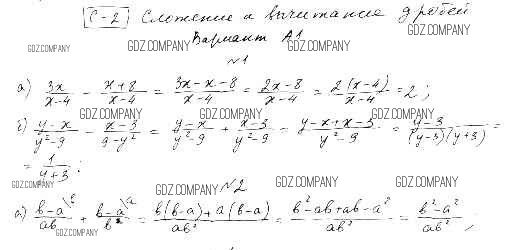 С-2 Сложение и вычитание дробей
GDZ.COMPANY GDZ.COMPANY GDZ.COMPANY
Вариант А1
№1
а) 3x/(x-4) - (x+8)/(x-4) = (3x-x-8)/(x-4) = (2x-8)/(x-4) = 2(x-4)/(x-4) = 2;
GDZ.COMPANY GDZ.COMPANY GDZ.COMPANY
б) (y-x)/(y²-9) - (x-3)/(9-y²) = (y-x)/(y²-9) + (x-3)/(y²-9) = (y-x+x-3)/(y²-9) = (y-3)/((y-3)(y+3)) =
= 1/(y+3);
GDZ.COMPANY GDZ.COMPANY GDZ.COMPANY GDZ.COMPANY
№2
а) (b-a\b)/(ab) + (b-a\a)/(b²) = (b(b-a)+a(b-a))/(ab²) = (b²-ab+ab-a²)/(ab²) = (b²-a²)/(ab²);
GDZ.COMPANY